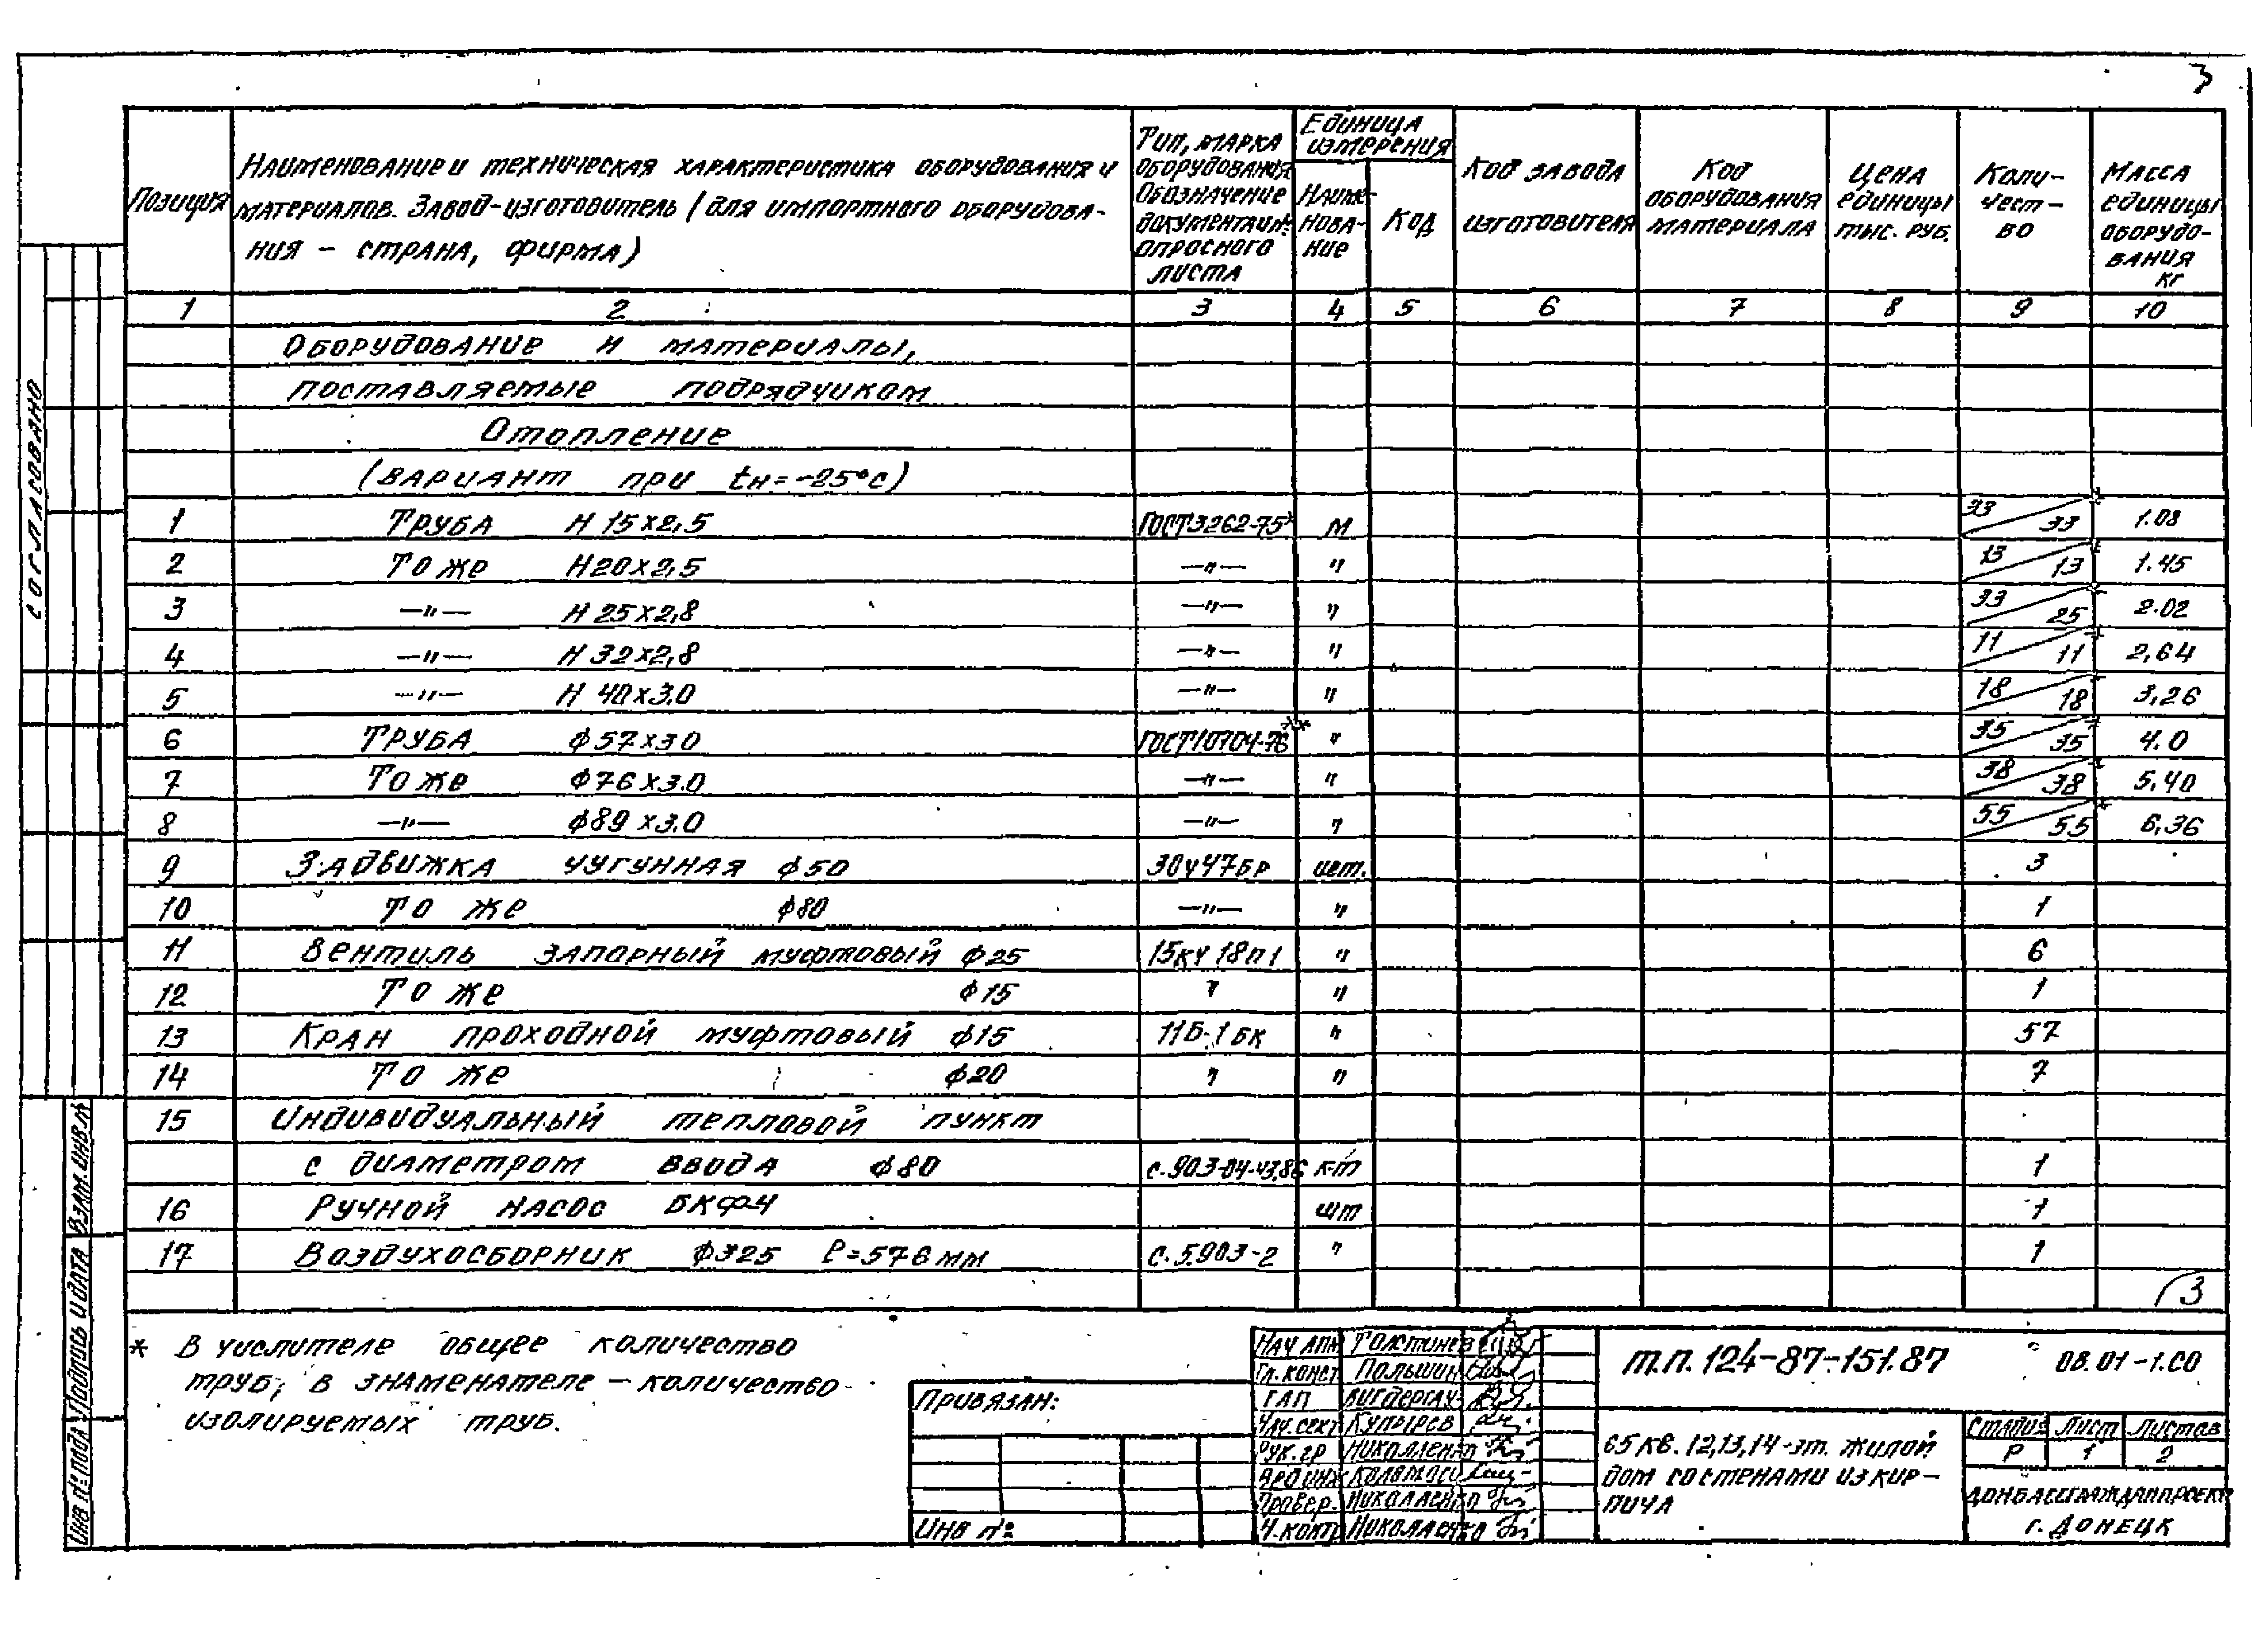 3
Позиция | Наименование и техническая характеристика оборудования и материалов. Завод-изготовитель (для импортного оборудования – страна, фирма) | Тип, марка оборудования Обозначение документации опросного листа | Единица измерения Наименование | Код | Код завода изготовителя | Код оборудования материала | Цена единицы тыс. руб. | Количество | Масса единицы оборудования кг
1 2 3 4 5 6 7 8 9 10
Оборудование и материалы,
поставляемые подрядчиком
Отопление
(вариант при tн=-25°С)
1 Труба Н 15х2,5 ГОСТ 3262-75* м 33/33* 1.08
2 То же Н20х2,5 —"— " 13/13* 1.45
3 —"— Н 25х2,8 —"— " 33/25* 2.02
4 —"— Н 32х2,8 —"— " 11/11* 2,64
5 —"— Н 40х3.0 —"— " 18/18* 3,26
6 Труба ф57х30 ГОСТ10704-76** " 35/35* 4.0
7 То же ф76х3.0 —"— " 38/38* 5,40
8 —"— ф89х3.0 —"— " 55/55* 6,36
9 Задвижка чугунная ф50 30ч47бр шт. 3
10 То же ф80 —"— " 1
11 Вентиль запорный муфтовый ф25 15кч 18п1 " 6
12 То же ф15 " " 1
13 Кран проходной муфтовый ф15 11Б-1бк " 57
14 То же ф20 " " 7
15 Индивидуальный тепловой пункт
с диаметром ввода ф80 с.903-04-43,86 к-т 1
16 Ручной насос БКФ-4 шт 1
17 Воздухосборник ф325 ℓ=576мм с.5.903-2 " 1
3
* В числителе общее количество
труб, в знаменателе – количество
изолируемых труб.
Привязан:
Инв №
Нач АПМ
Гл. конст. Польшин
ГАП Вигдергауз
Нач. сект Купырев
Рук. гр Николаенко
Вед инж
Провер. Николаенко
Н.контр Николаенко
т.п. 124-87-151.87 08.01-1.СО
65 кв. 12,13,14-эт. жилой
дом со стенами из кир-
пича
Стадия Лист Листов
Р 1 2
ДОНБАССГРАЖДАНПРОЕКТ
г. Донецк
Согласовано
Взам. инв. №
Подпись и дата
Инв № подл